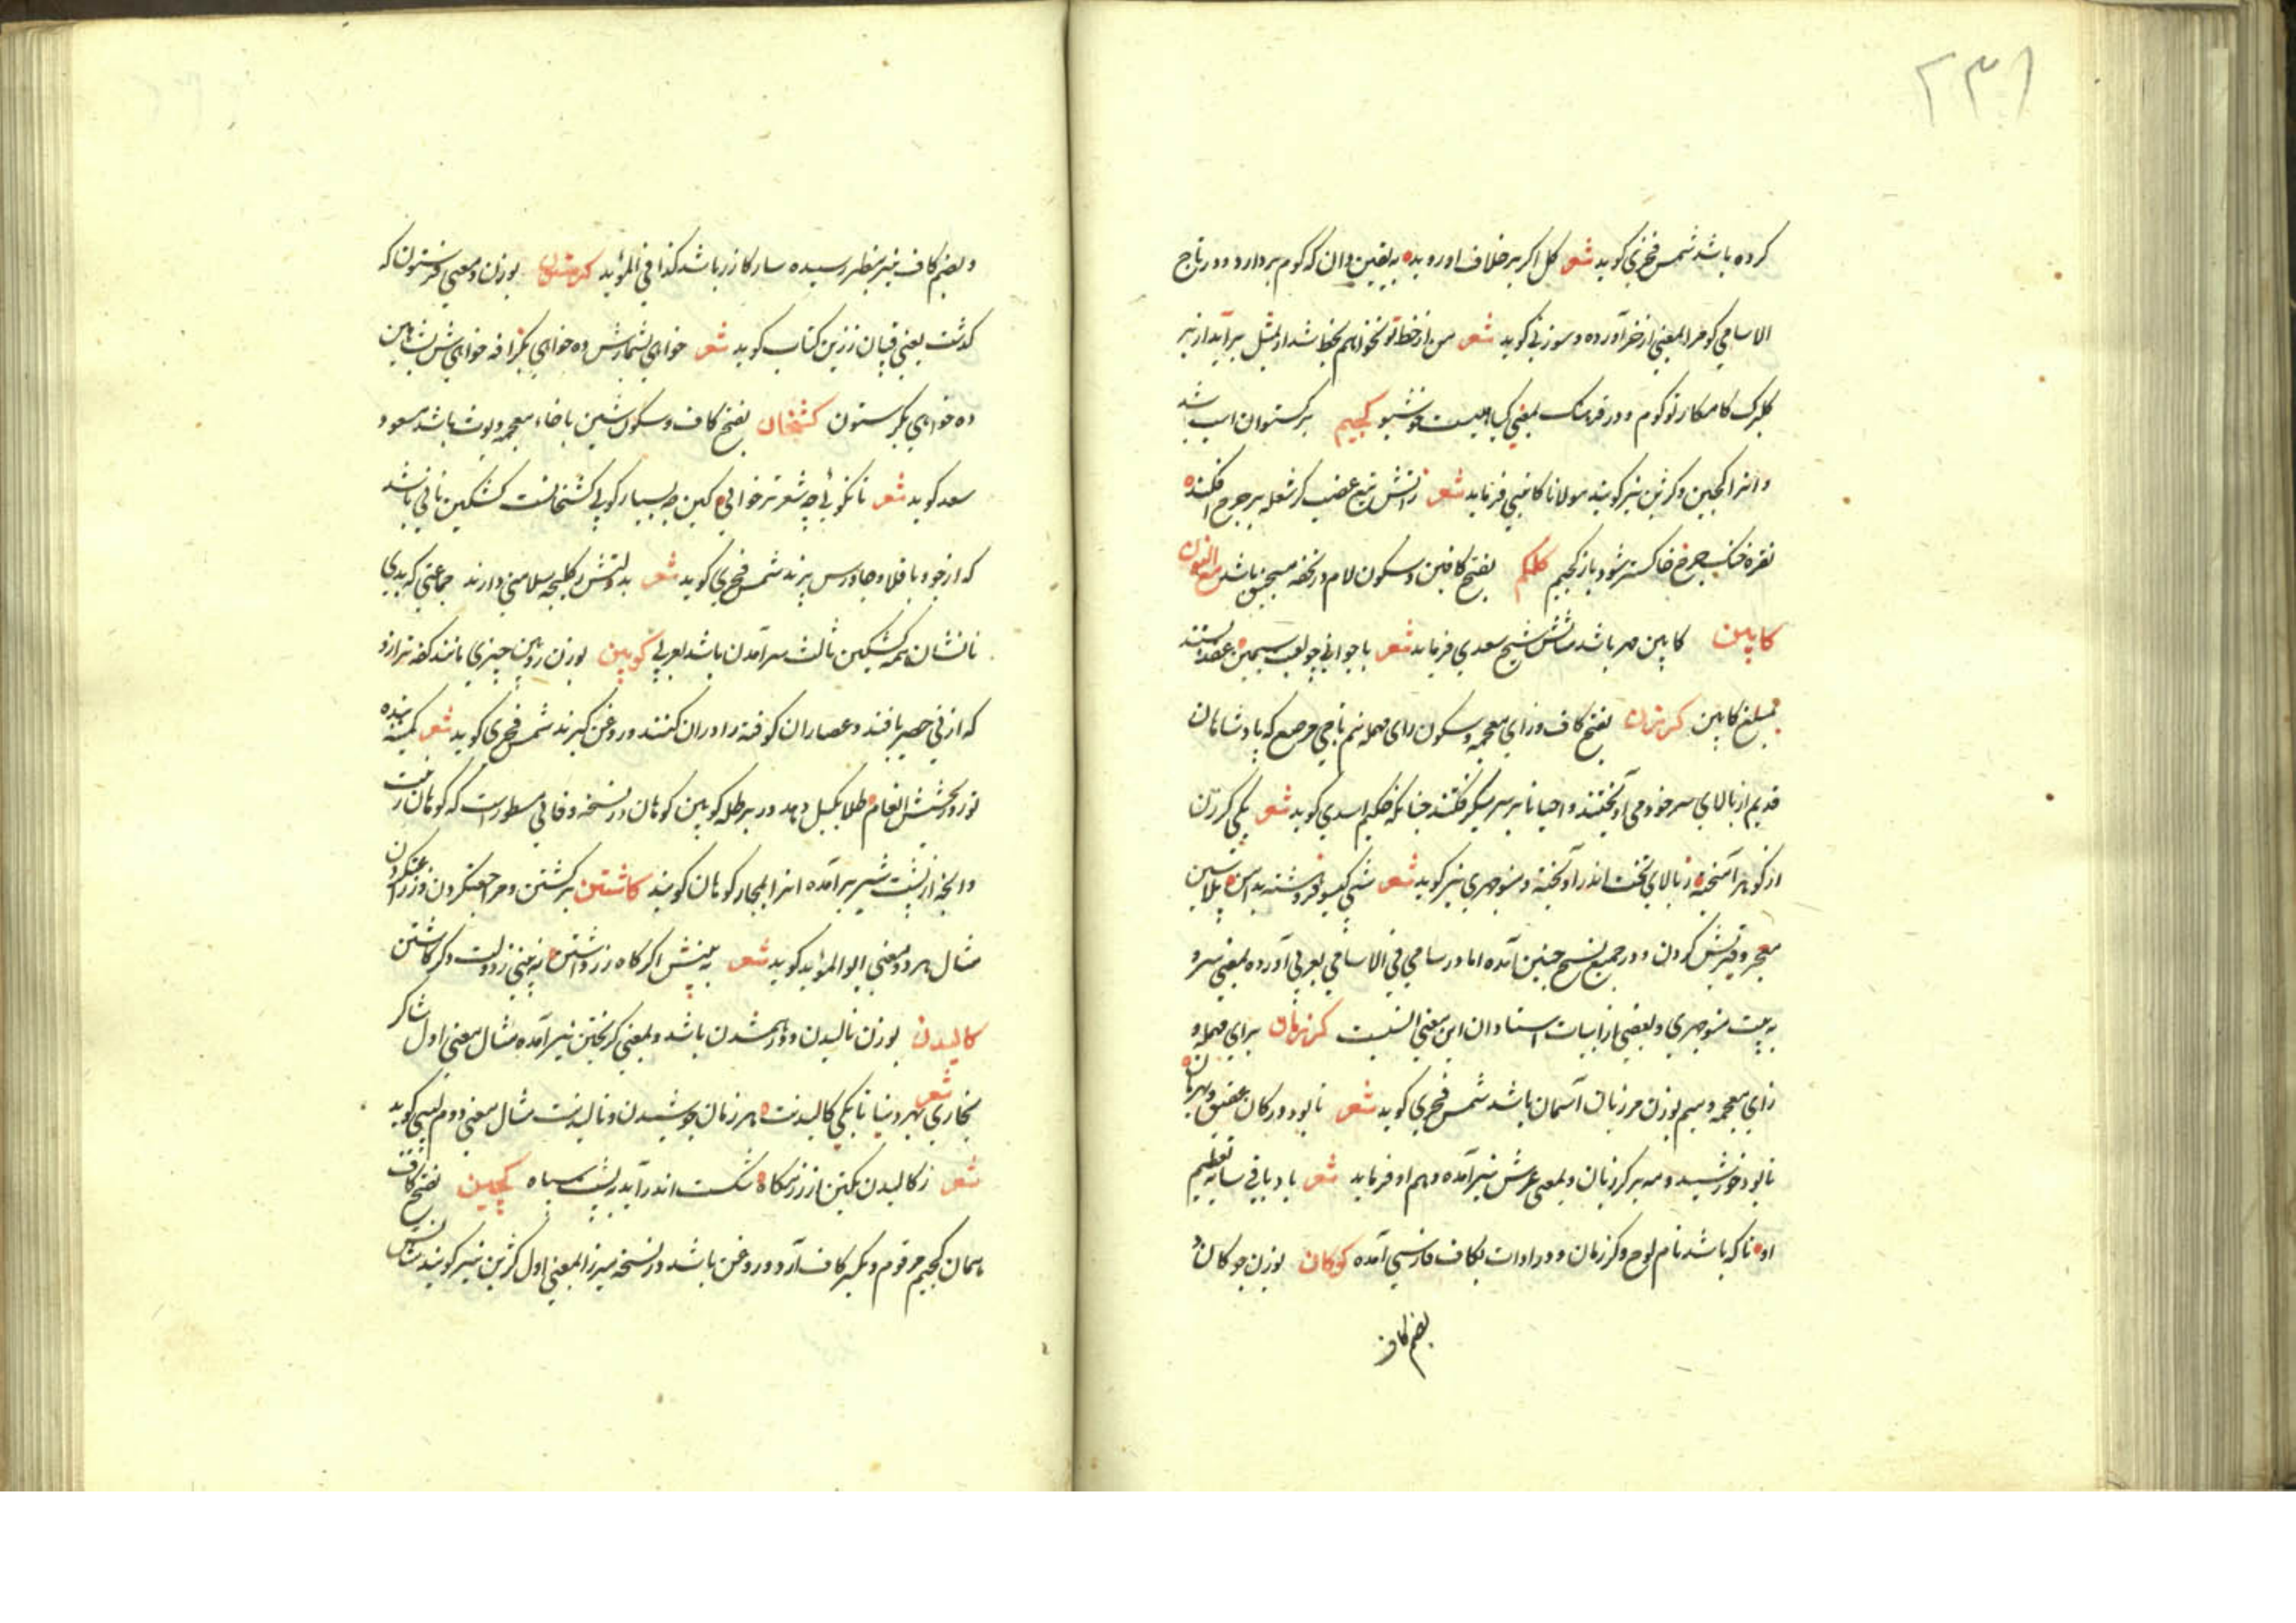 ۲۳۱
کرده باشد شمس فخری کوید شعر کل اکر بر خلاف او روید به یقین دان که کوم بردارد و در تاج
الاسامی کوم را بمعنی اذخر آورده و سوزنی کوید شعر من از خط تو نخواهم بخط شد ار بمثل برآید از بر
کلبرک کامکار تو کوم و در فرهنک بمعنی کیاهیست خوشبو کجیم برکستوان اسب باشد
و انرا کجین و کژین نیز کویند مولانا کاتبی فرماید شعر ز آتش تیغ غضب کر شعله بر چرخ افکند
نقره خنک چرخ خاکستر شود باز کجیم کلکم بفتح کافین و سکون لام در تحفه منجنیق باشد مع النون
کاپین کاپین مهر باشد مثالش شیخ سعدی فرماید شعر با جوانی چو لعبت سیمین عقد بستند
بمبلغ کاپین کرزن بفتح کاف و زای معجمه و سکون رای مهمله نیم تاجی مرصع که پادشاهان
قدیم از بالای سر خود می آویختند و احیانا بر سر میکرفتند چنانکه حکیم اسدی کوید شعر یکی کرزن
از کوهر آمیخته ز بالای تخت اندر آویخته و منوچهری نیز کوید شعر شبی کیسو فروهشته بدامن پلاسین
معجر و قیرینش کرزن و در جمیع نسخ چنین آمده اما در سامی فی الاسامی بعربی آورده بمعنی سر و
به بیت منوچهری و بعضی از ابیات استادان این معنی انسبست کرزمان برای مهمله و
زای معجمه و میم بوزن مرزبان آسمان باشد شمس فخری کوید شعر تا بود در کان عقیق و بهرمان
تا بود خورشید و مه بر کرزمان و بمعنی عرش نیز آمده و هم او فرماید شعر باد باقی سایه تعظیم
او تا که باشد نام لوح و کرزمان و در ادات بکاف فارسی آمده کوکان بوزن چوکان
بضم کاف
و بضم کاف نیز بنظر رسیده سار کازر باشد کذا فی المؤید کرستون بوزن و معنی فرستون که
کذشت یعنی قپان زرین کتاب کوید شعر خواهی بشمارش ده خواهی بکزافه خواهیش بشاهین
ده خواهی بکرستون کشخان بفتح کاف و سکون شین با خاء معجمه دیوث باشد مسعود
سعد کوید شعر تا نکوئی چه شعر تر خوانی کین چه بسیار کوی کشخانست کشکین نانی باشد
که از جو و باقلا و جاورس پزند شمس فخری کوید شعر بدولتش کلیچه سلامین دارند جماعتی که بدی
نانشان همه کشکین ثالث سرآمدن باشد بعربی کوپین بوزن روبین چیزی مانند کفه ترازو
که از نی حصیر بافند و عصاران کوفته را در ان کنند و روغن کیرند شمس فخری کوید شعر کمینه بنده
تو روز بخشش انعام طلا بکیل دهد در برطله کوپین کوهان در نسخه وفائی مسطورست که کوهان زینست
و انچه از پشت شتر برآمده انرا بمجاز کوهان کویند کاشتن برکشتن و مراجعت کردن و زراعت کردن
مثال هر دو معنی ابو المؤید کوید شعر به بینش اکر کاه زر داشتن به بینی ز دولت دکر کاشتن
کالیدن بوزن نالیدن و درهم شدن باشد و بمعنی کریختن نیز آمده مثال معنی اول شاکر
بخاری شعر بهر دنیا تا بکی کالیدنت هر زمان جوشیدن و نالیدنت مثال معنی دوم لبیبی کوید
شعر ز کالیدن یکتن از رزمکاه شکست اندر آید به پشت سپاه کجین بفتح کاف
همان کجیم مرقوم و بکسر کاف آرد و روغن باشد و در نسخه میرزا بمعنی اول کژین نیز کویند